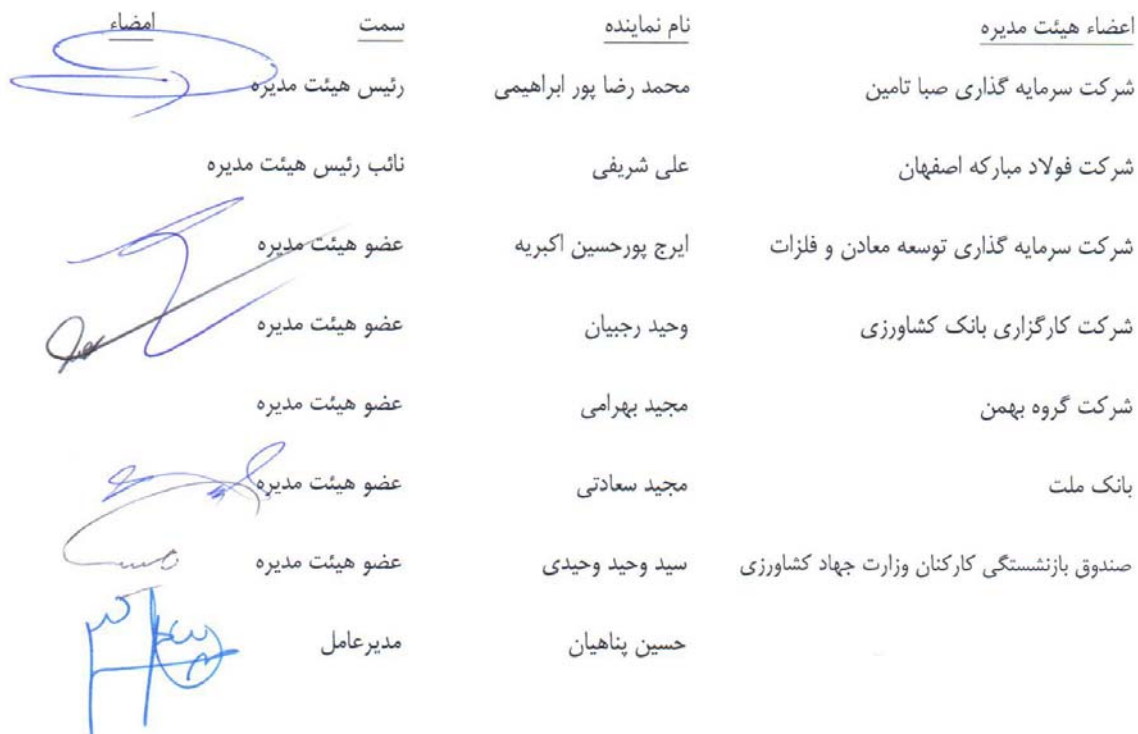 اعضاء هیئت مدیره نام نماینده سمت امضاء
شرکت سرمایه گذاری صبا تامین محمد رضا پور ابراهیمی رئیس هیئت مدیره
شرکت فولاد مبارکه اصفهان علی شریفی نائب رئیس هیئت مدیره
شرکت سرمایه گذاری توسعه معادن و فلزات ایرج پورحسین اکبریه عضو هیئت مدیره
شرکت کارگزاری بانک کشاورزی وحید رجبیان عضو هیئت مدیره
شرکت گروه بهمن مجید بهرامی عضو هیئت مدیره
بانک ملت مجید سعادتی عضو هیئت مدیره
صندوق بازنشستگی کارکنان وزارت جهاد کشاورزی سید وحید وحیدی عضو هیئت مدیره
حسین پناهیان مدیرعامل